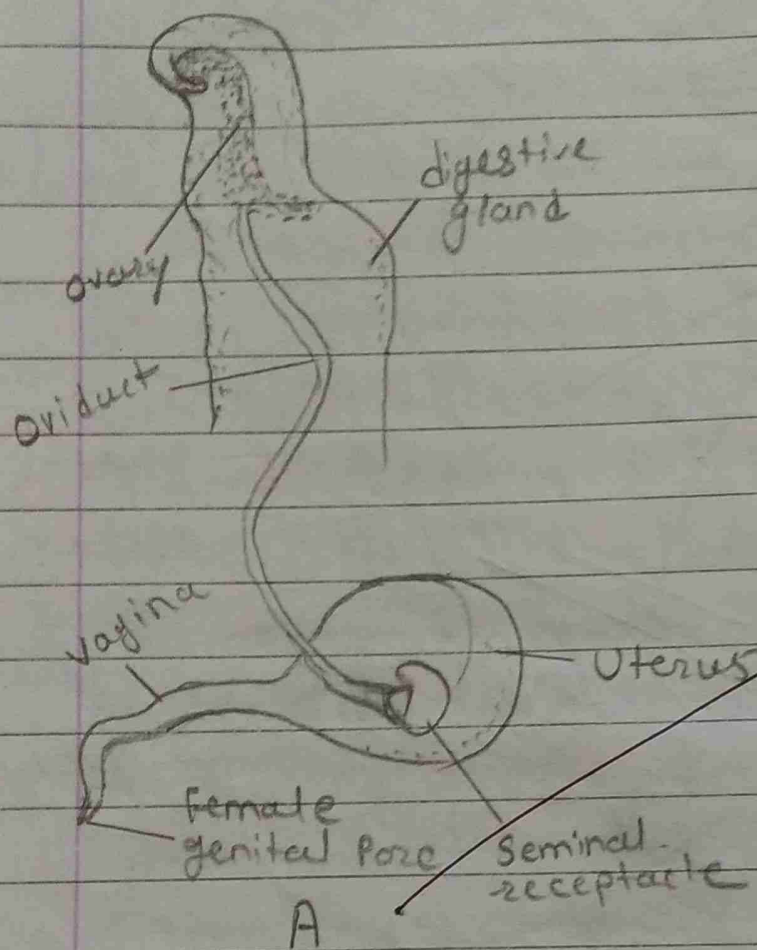 digestive
gland
ovary
Oviduct
vagina
Uterus
Female
genital Pore
Seminal-
-receptacle
A